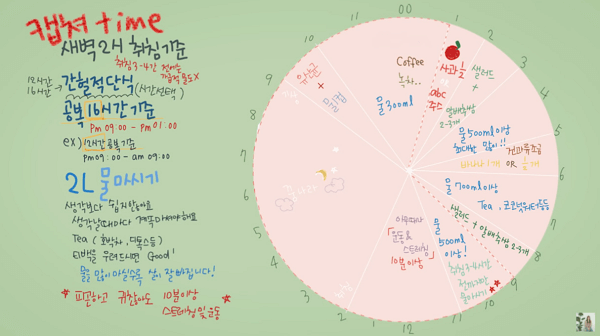 캡쳐 time
새벽 2시 취침기준
취침 3-4시간 전에는
12시간
16시간
간헐적단식 (시간선택)
공복 16시간 기준
Pm 09:00 - pm 01:00
ex) 12시간 공복 기준
pm 09:00 - am 09:00
2L 물 마시기
생각보다 쉽지않아요
생각날때마다 계속 마셔야해요
Tea ( 호박차, 디톡스등 )
티백을 우려드시면 Good!
물을 많이 마실수록 살이 잘빠집니다!
피곤하고 귀찮아도 10분이상
스트레칭 및 운동
00
1
2
3
4
5
6
7
8
9
10
11
12
1
2
3
4
5
6
7
8
9
10
11
유산균
+
물 300ml
Coffee
녹차..
사과 ½
abc
주스
샐러드
+
2-3개
물 500ml 이상
최대한 많이!!
견과류조금
바나나 1개 OR
물 700ml 이상
Tea, 코코넛워터등등
샐러드 + 알배추쌈 2-3개
물
500ml
이상!
취침 3-4시간
전까지만
물마시기
운동 &
스트레칭
10분이상